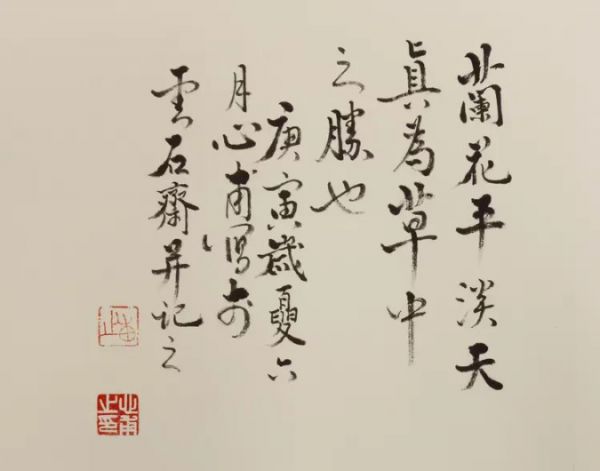 蘭花平淡天
真為草中
之勝也
庚寅歲夏六
月心甫寫於
雲石齋並記之